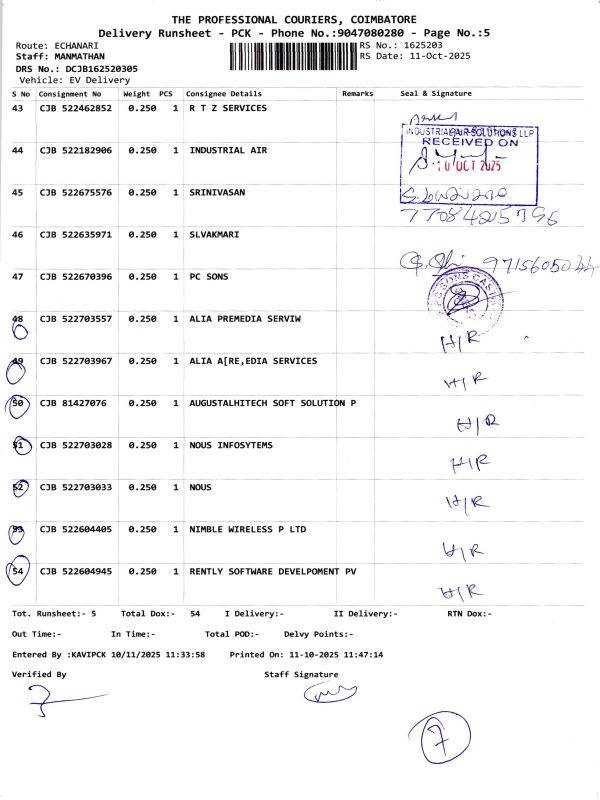 THE PROFESSIONAL COURIERS, COIMBATORE
Delivery Runsheet - PCK - Phone No.:9047080280 - Page No.:5
Route: ECHANARI
Staff: MANMATHAN
DRS No.: DCJB162520305
Vehicle: EV Delivery
RS No.: 1625203
RS Date: 11-Oct-2025
S No Consignment No Weight PCS Consignee Details Remarks Seal & Signature
43 CJB 522462852 0.250 1 R T Z SERVICES
INDUSTRIAL AIR SOLUTIONS LLP
RECEIVED ON
44 CJB 522182906 0.250 1 INDUSTRIAL AIR
10 OCT 2025
45 CJB 522675576 0.250 1 SRINIVASAN
7708425796
46 CJB 522635971 0.250 1 SLVAKMARI
9715605044
47 CJB 522670396 0.250 1 PC SONS
48 CJB 522703557 0.250 1 ALIA PREMEDIA SERVIW
H/R
49 CJB 522703967 0.250 1 ALIA A[RE,EDIA SERVICES
H/R
50 CJB 81427076 0.250 1 AUGUSTALHITECH SOFT SOLUTION P
H/R
51 CJB 522703028 0.250 1 NOUS INFOSYTEMS
H/R
52 CJB 522703033 0.250 1 NOUS
H/R
53 CJB 522604405 0.250 1 NIMBLE WIRELESS P LTD
H/R
54 CJB 522604945 0.250 1 RENTLY SOFTWARE DEVELPOMENT PV
H/R
Tot. Runsheet:- 5 Total Dox:- 54 I Delivery:- II Delivery:- RTN Dox:-
Out Time:- In Time:- Total POD:- Delvy Points:-
Entered By :KAVIPCK 10/11/2025 11:33:58 Printed On: 11-10-2025 11:47:14
Verified By Staff Signature
7